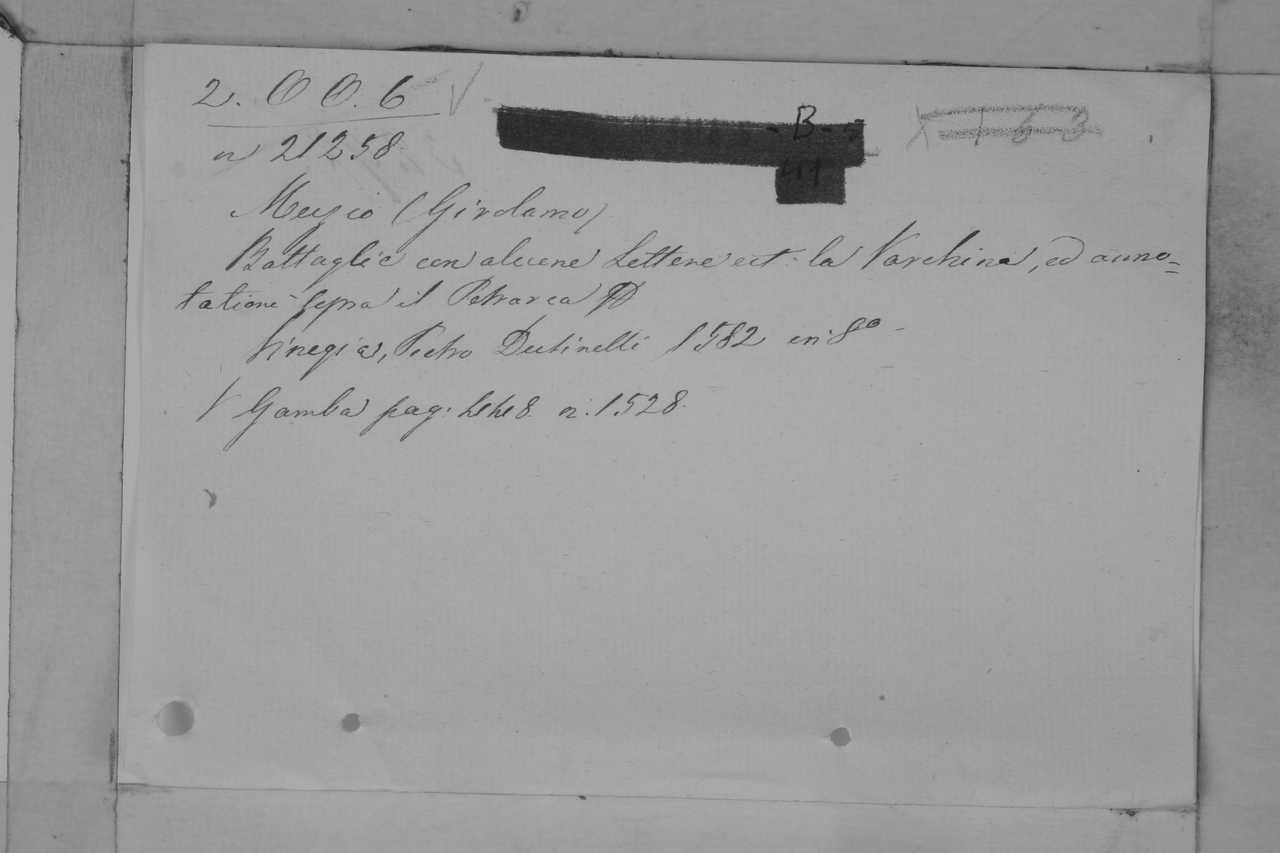 2. O O. 6 V
n 21258
Muzio (Girolamo)
Battaglie con alcune Lettere ect: la Varchina, ed anno=
tationi sopra il Petrarca
Vinegia, Pietro Dusinelli 1582 in 8º
V Gamba pag: 448. n. 1528.
- B -